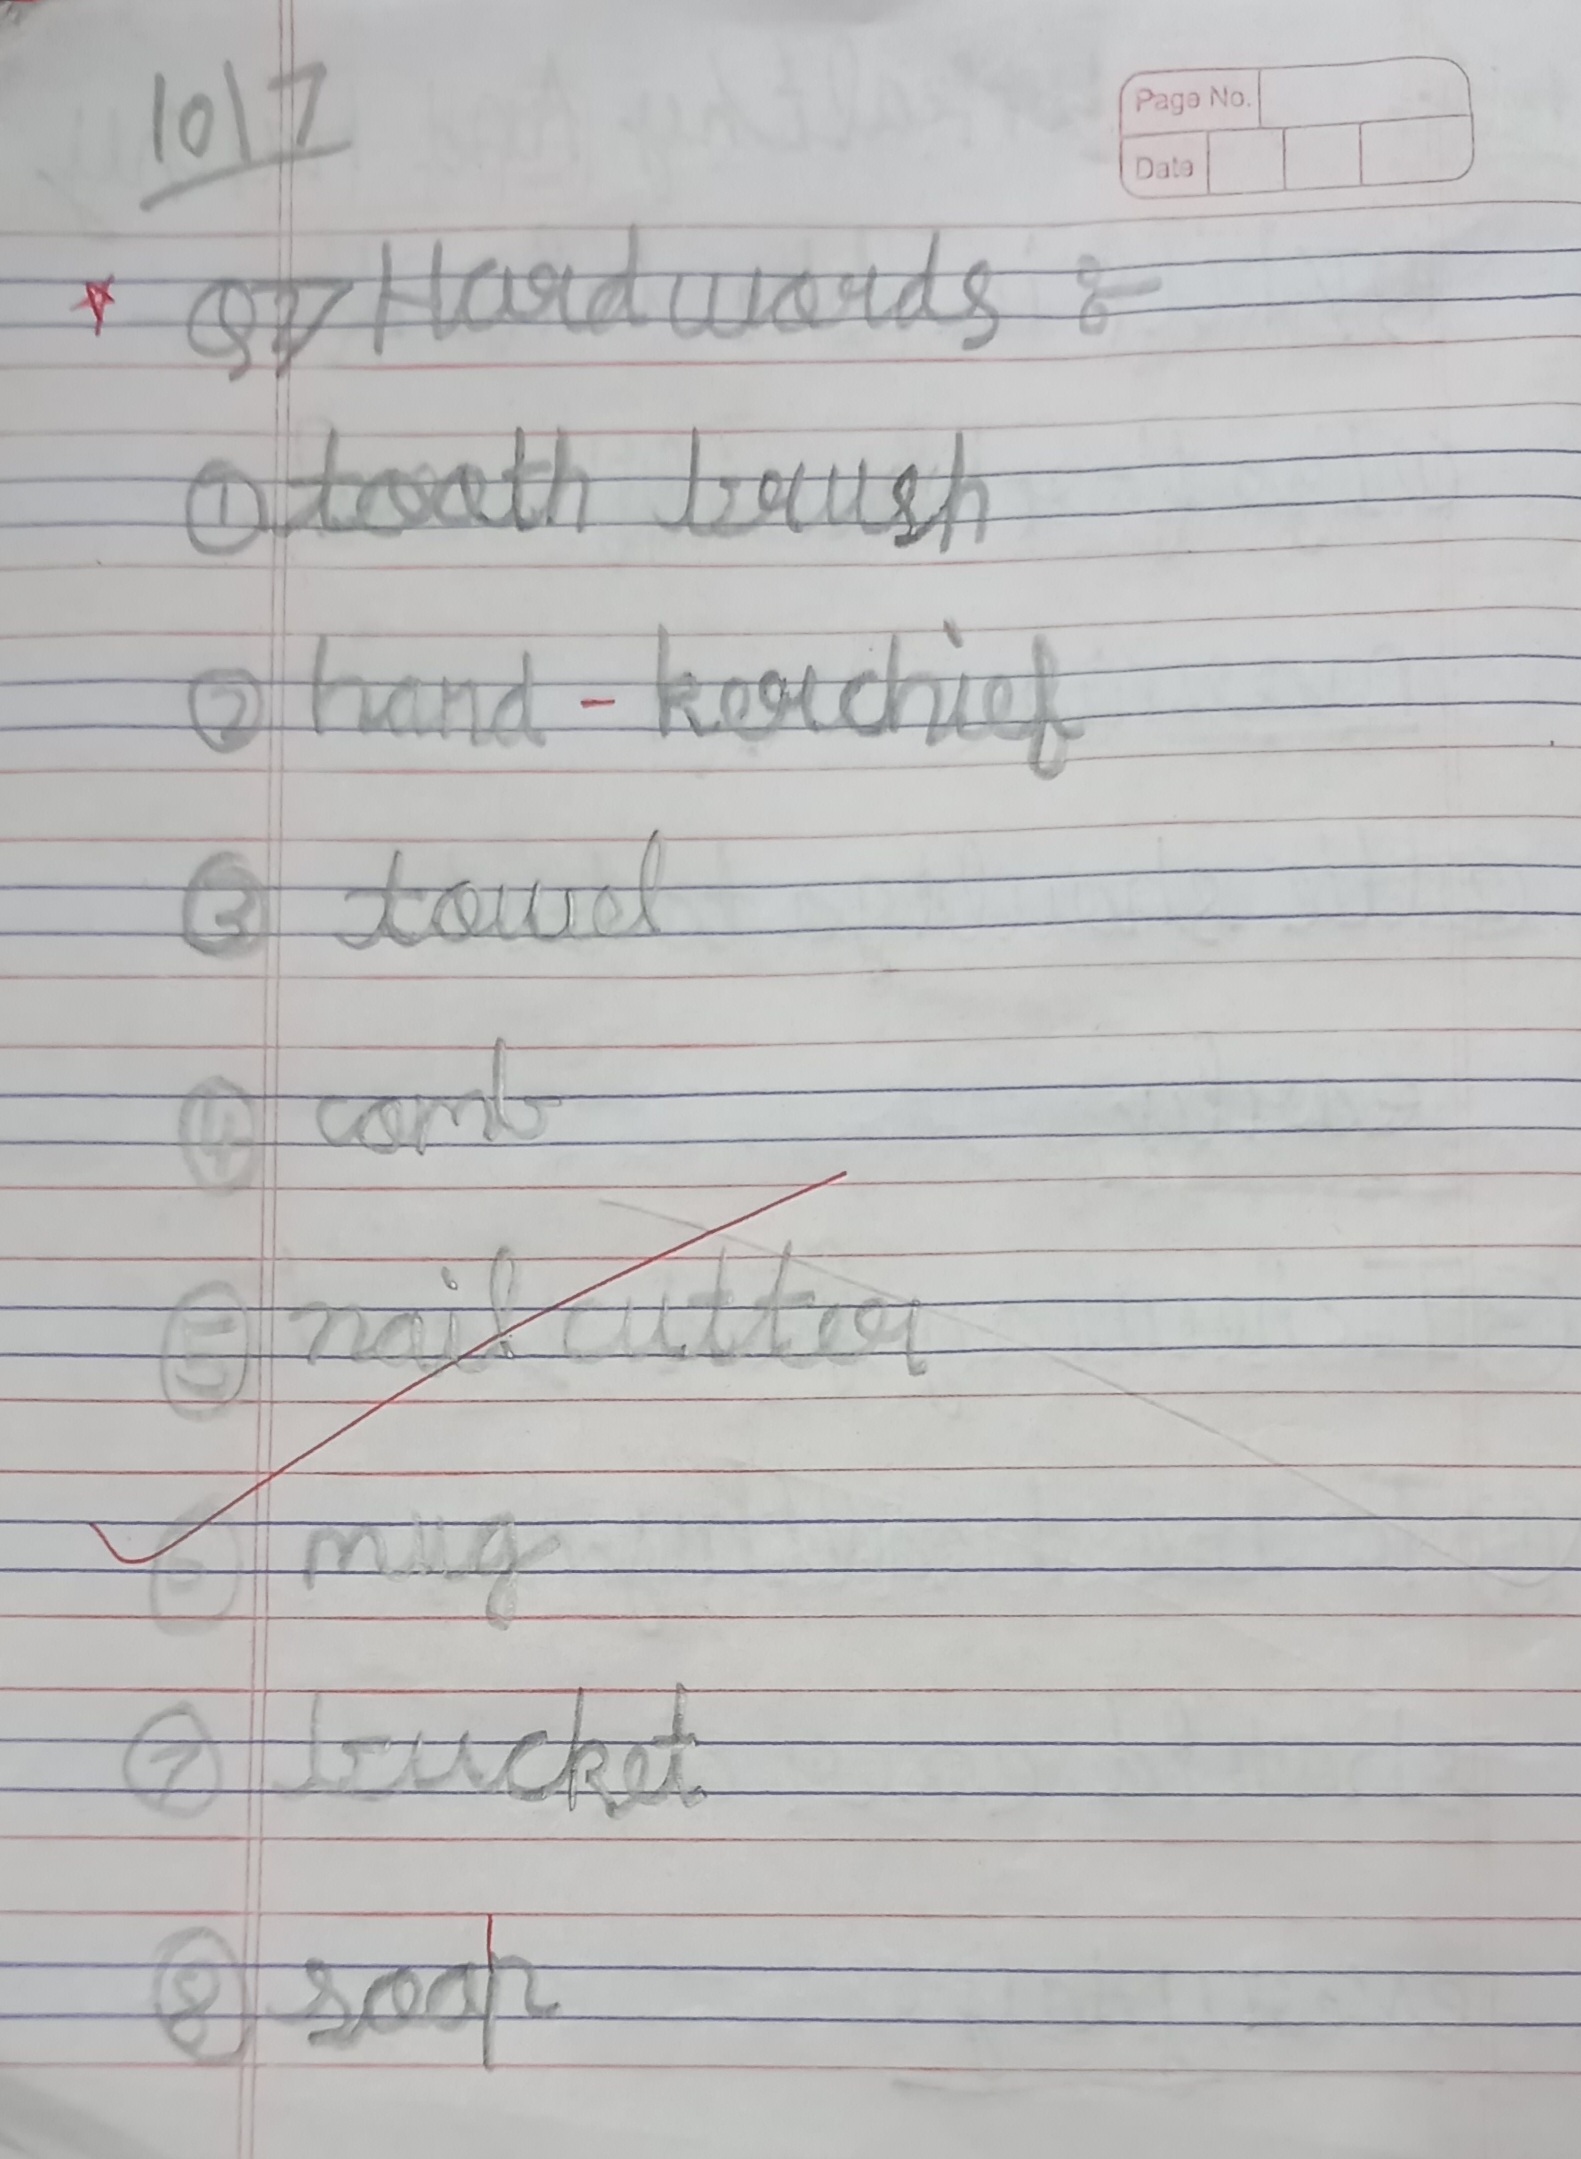 10/7
Page No.
Date
Q7 Hardwords :-
① tooth brush
② hand - kerchief
③ towel
④ comb
⑤ nail cutter
⑥ mug
⑦ bucket
⑧ soap